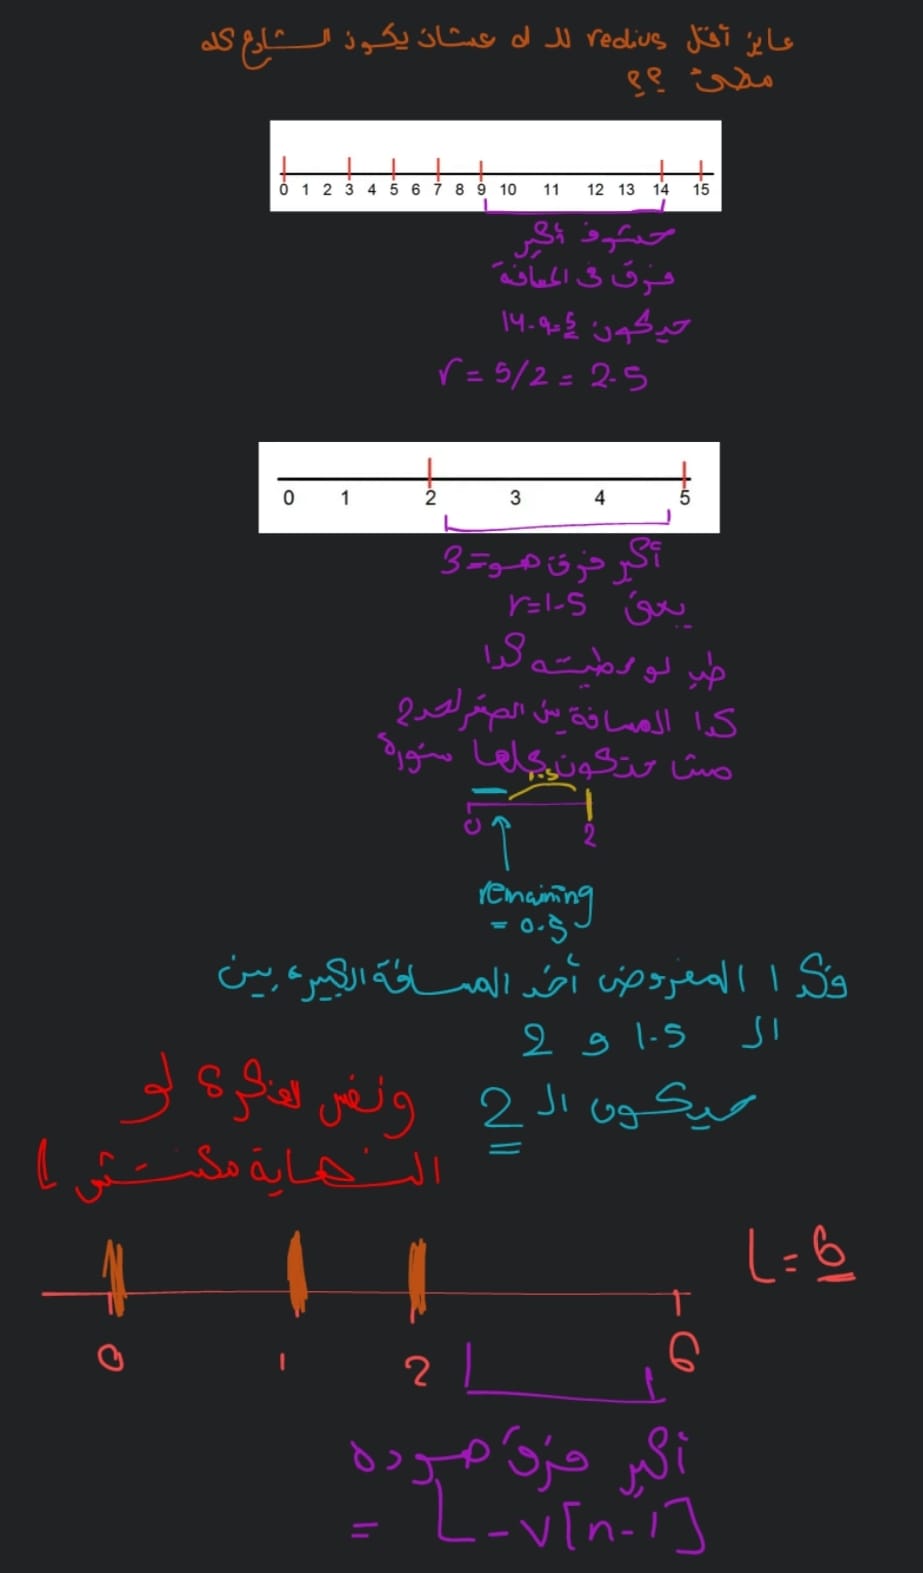 عايز أقل redius لل d عشان يكون الشارع كله
مضئ ؟؟
0 1 2 3 4 5 6 7 8 9 10 11 12 13 14 15
حنشوف أكبر
فرق فى المسافة
حيكون 14-9=5
r = 5/2 = 2.5
0 1 2 3 4 5
أكبر فرق هو=3
يعنى r=1.5
طب لو مطيته كدا
كدا المسافة من الصفر لحد 2
مش حتكون كلها منورة
1.5
0 2
remaining
= 0.5
وكدا المفروض أخد المسافة الكبيرة بين
ال 1.5 و 2
حيكون ال 2
ونفس الفكرة لو
النهاية مكنتش l
L=6
0 1 2 6
أكبر فرق هو ده
= L-v[n-1]